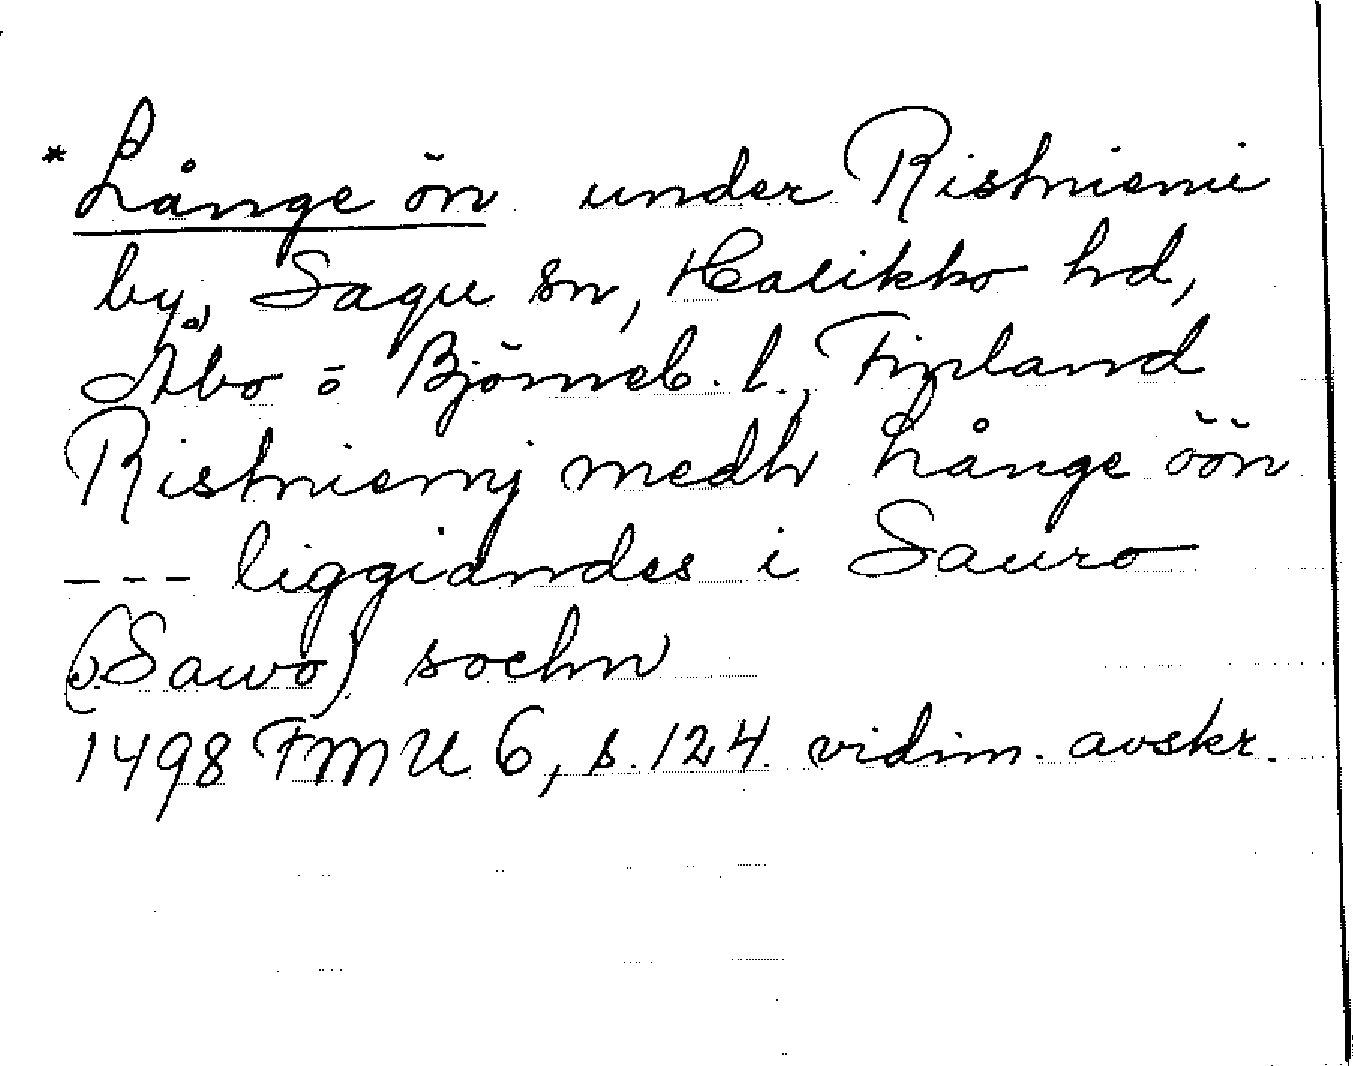 * Långe ön under Ristniemi
by, Sagu sn, Halikko hd,
Åbo o Björneb. l., Finland
Ristniemj medh Långe öön
--- liggiandes i Sauro
(Sauvo) sochn
1498 FMU 6, s. 124 vidim. avskr.